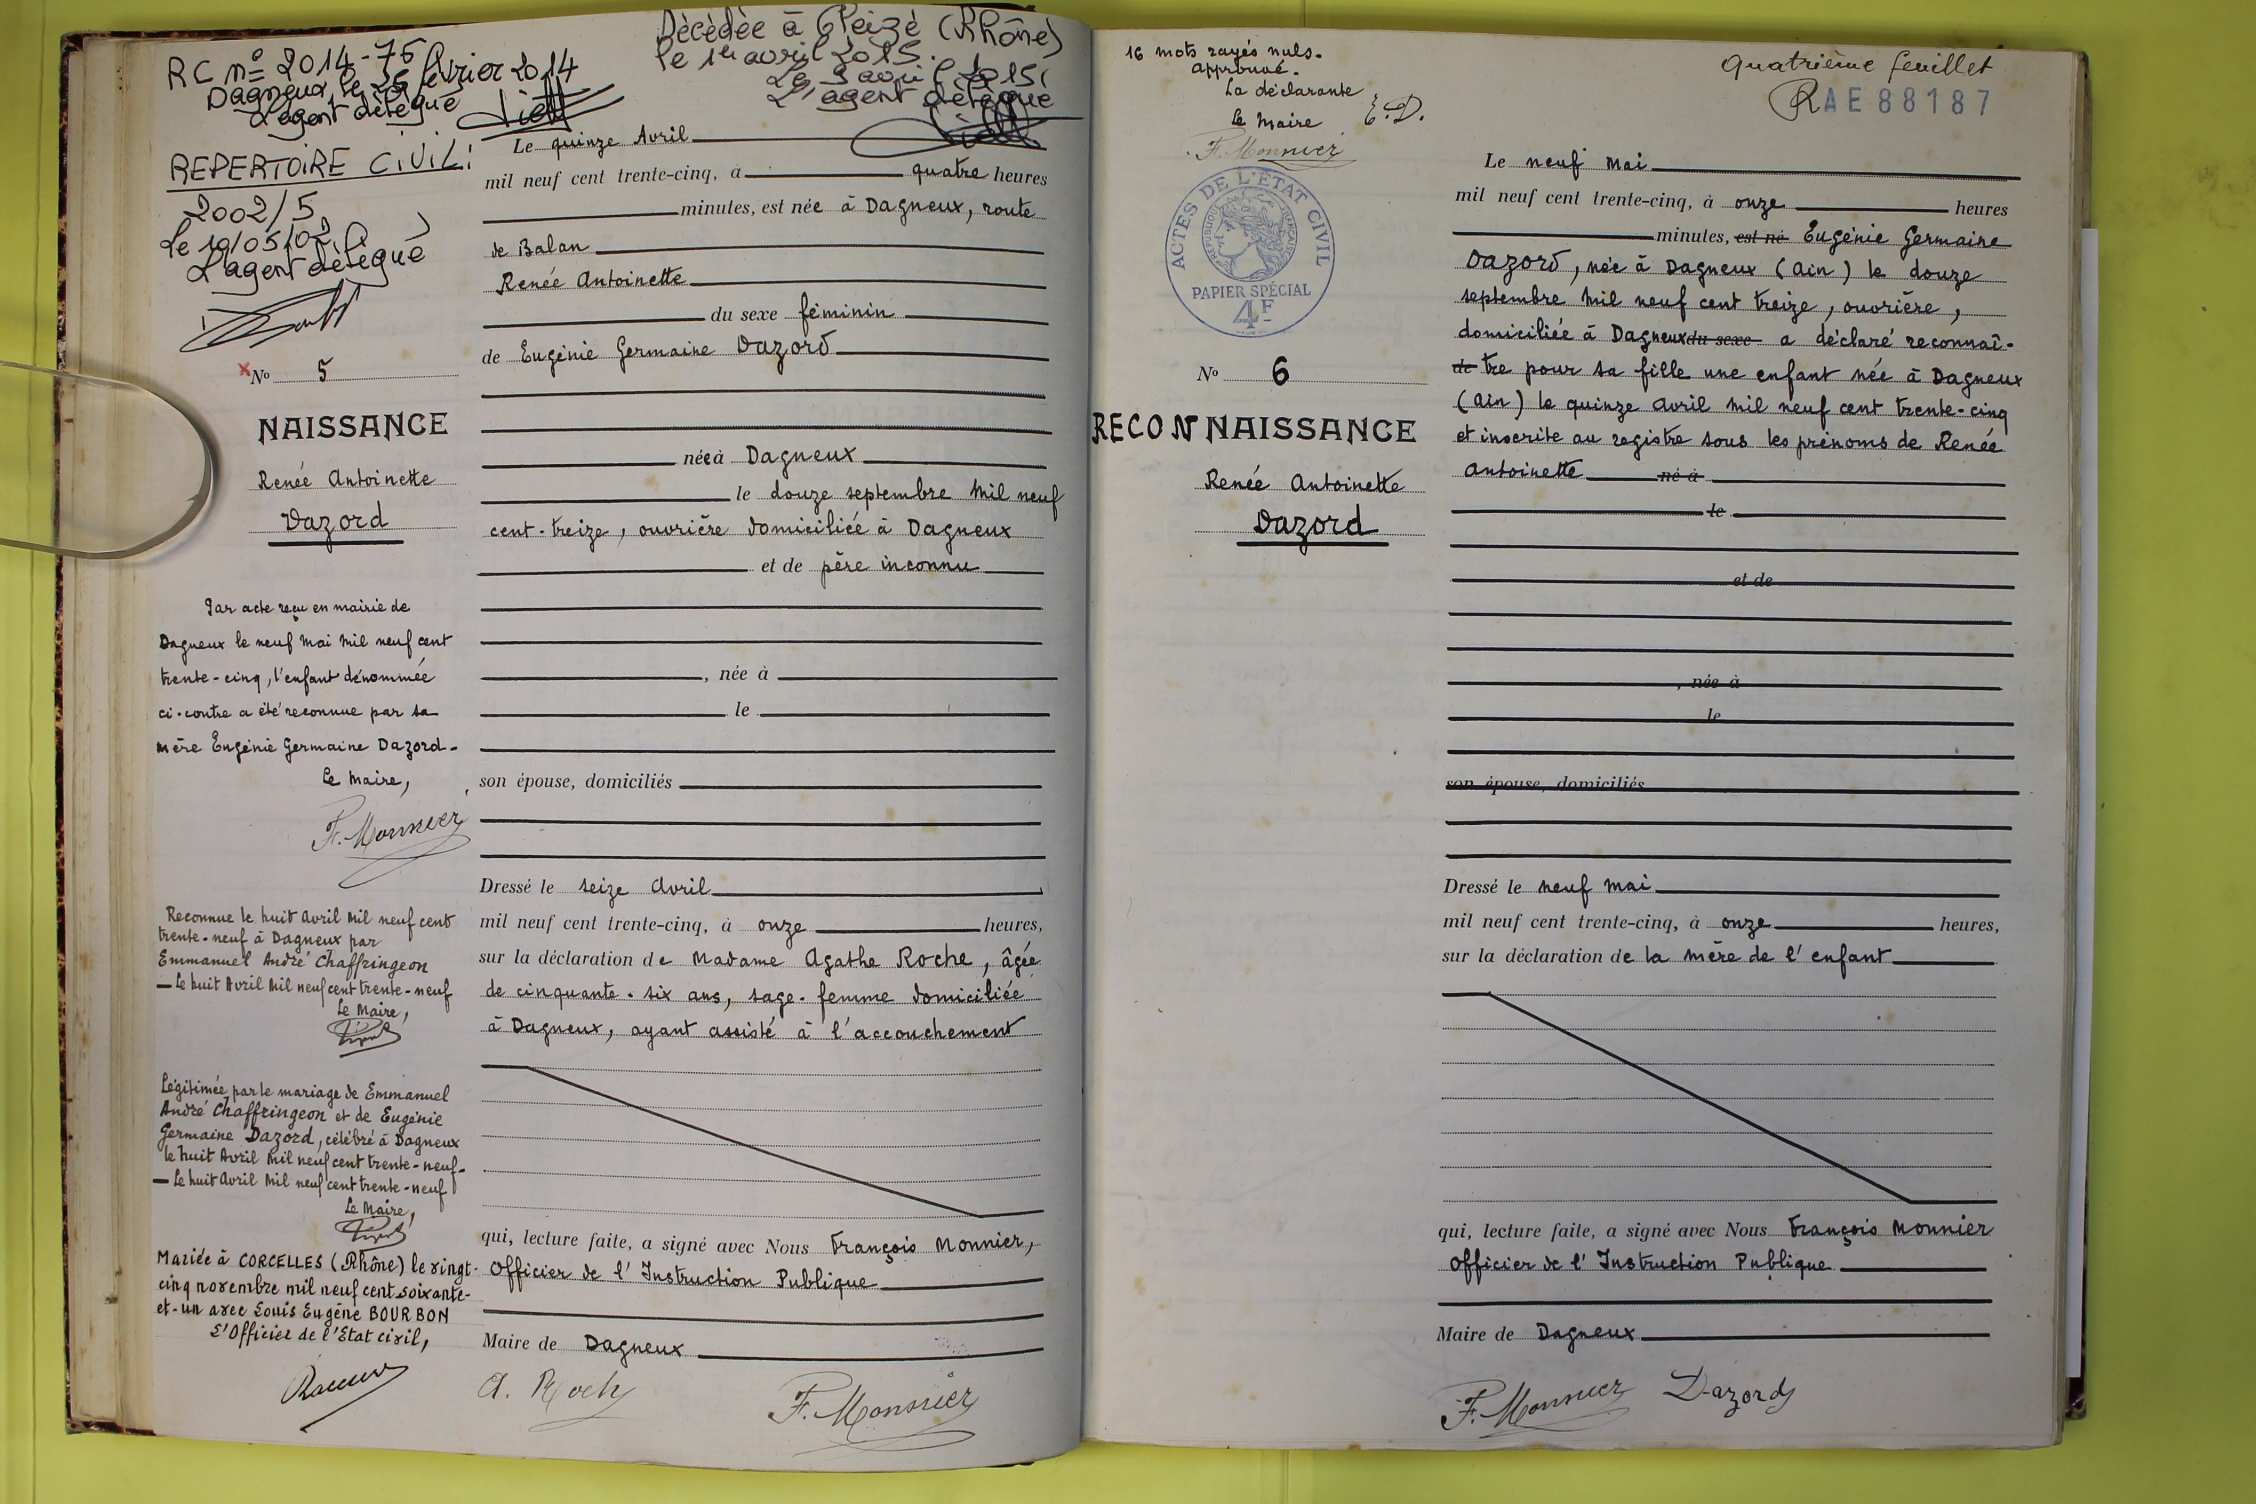 RC n° 2014-75
Dagneux, le 25 février 2014
L'agent délégué
Décédée à Gleizé (Rhône)
le 1er avril 2015.
Le 9 avril 2015,
L'agent délégué
REPERTOIRE CIVIL:
2002/5
Le 10/05/02
L'agent délégué
No 5
NAISSANCE
Renée Antoinette
Dazord
Par acte reçu en mairie de
Dagneux le neuf mai mil neuf cent
trente-cinq, l'enfant dénommée
ci-contre a été reconnue par sa
mère Eugénie Germaine Dazord-
Le Maire,
F. Monnier
Reconnue le huit Avril mil neuf cent
trente-neuf à Dagneux par
Emmanuel André Chaffringeon
— Le huit Avril mil neuf cent trente-neuf
Le Maire,
Légitimée par le mariage de Emmanuel
André Chaffringeon et de Eugénie
Germaine Dazord, célébré à Dagneux
le huit Avril mil neuf cent trente-neuf-
— Le huit Avril mil neuf cent trente-neuf
Le Maire,
Mariée à CORCELLES (Rhône) le vingt-
cinq novembre mil neuf cent soixante-
et-un avec Louis Eugène BOURBON
L'Officier de l'Etat civil,
Le quinze Avril
mil neuf cent trente-cinq, à quatre heures
minutes, est née à Dagneux, route
de Balan
Renée Antoinette
du sexe féminin
de Eugénie Germaine Dazord
née à Dagneux
le douze septembre mil neuf
cent-treize, ouvrière domiciliée à Dagneux
et de père inconnu
, née à
le
son épouse, domiciliés
Dressé le seize Avril
mil neuf cent trente-cinq, à onze heures,
sur la déclaration de Madame Agathe Roche, âgée
de cinquante-six ans, sage-femme domiciliée
à Dagneux, ayant assisté à l'accouchement
qui, lecture faite, a signé avec Nous François Monnier,
Officier de l'Instruction Publique
Maire de Dagneux
A. Roch
F. Monnier
16 mots rayés nuls.
approuvé.
La déclarante
E. D.
Le Maire
F. Monnier
quatrième feuillet
AE88187
ACTES DE L'ÉTAT CIVIL
RÉPUBLIQUE FRANÇAISE
PAPIER SPÉCIAL
4F
No 6
RECONNAISSANCE
Renée Antoinette
Dazord
Le neuf mai
mil neuf cent trente-cinq, à onze heures
minutes, est né Eugénie Germaine
Dazord, née à Dagneux (Ain) le douze
septembre mil neuf cent treize, ouvrière,
domiciliée à Dagneux du sexe a déclaré reconnaî-
de tre pour sa fille une enfant née à Dagneux
(Ain) le quinze avril mil neuf cent trente-cinq
et inscrite au registre sous les prénoms de Renée
Antoinette né à
le
et de
, née à
le
son épouse, domiciliés
Dressé le neuf mai
mil neuf cent trente-cinq, à onze heures,
sur la déclaration de la mère de l'enfant
qui, lecture faite, a signé avec Nous François Monnier
Officier de l'Instruction Publique
Maire de Dagneux
F. Monnier Dazord